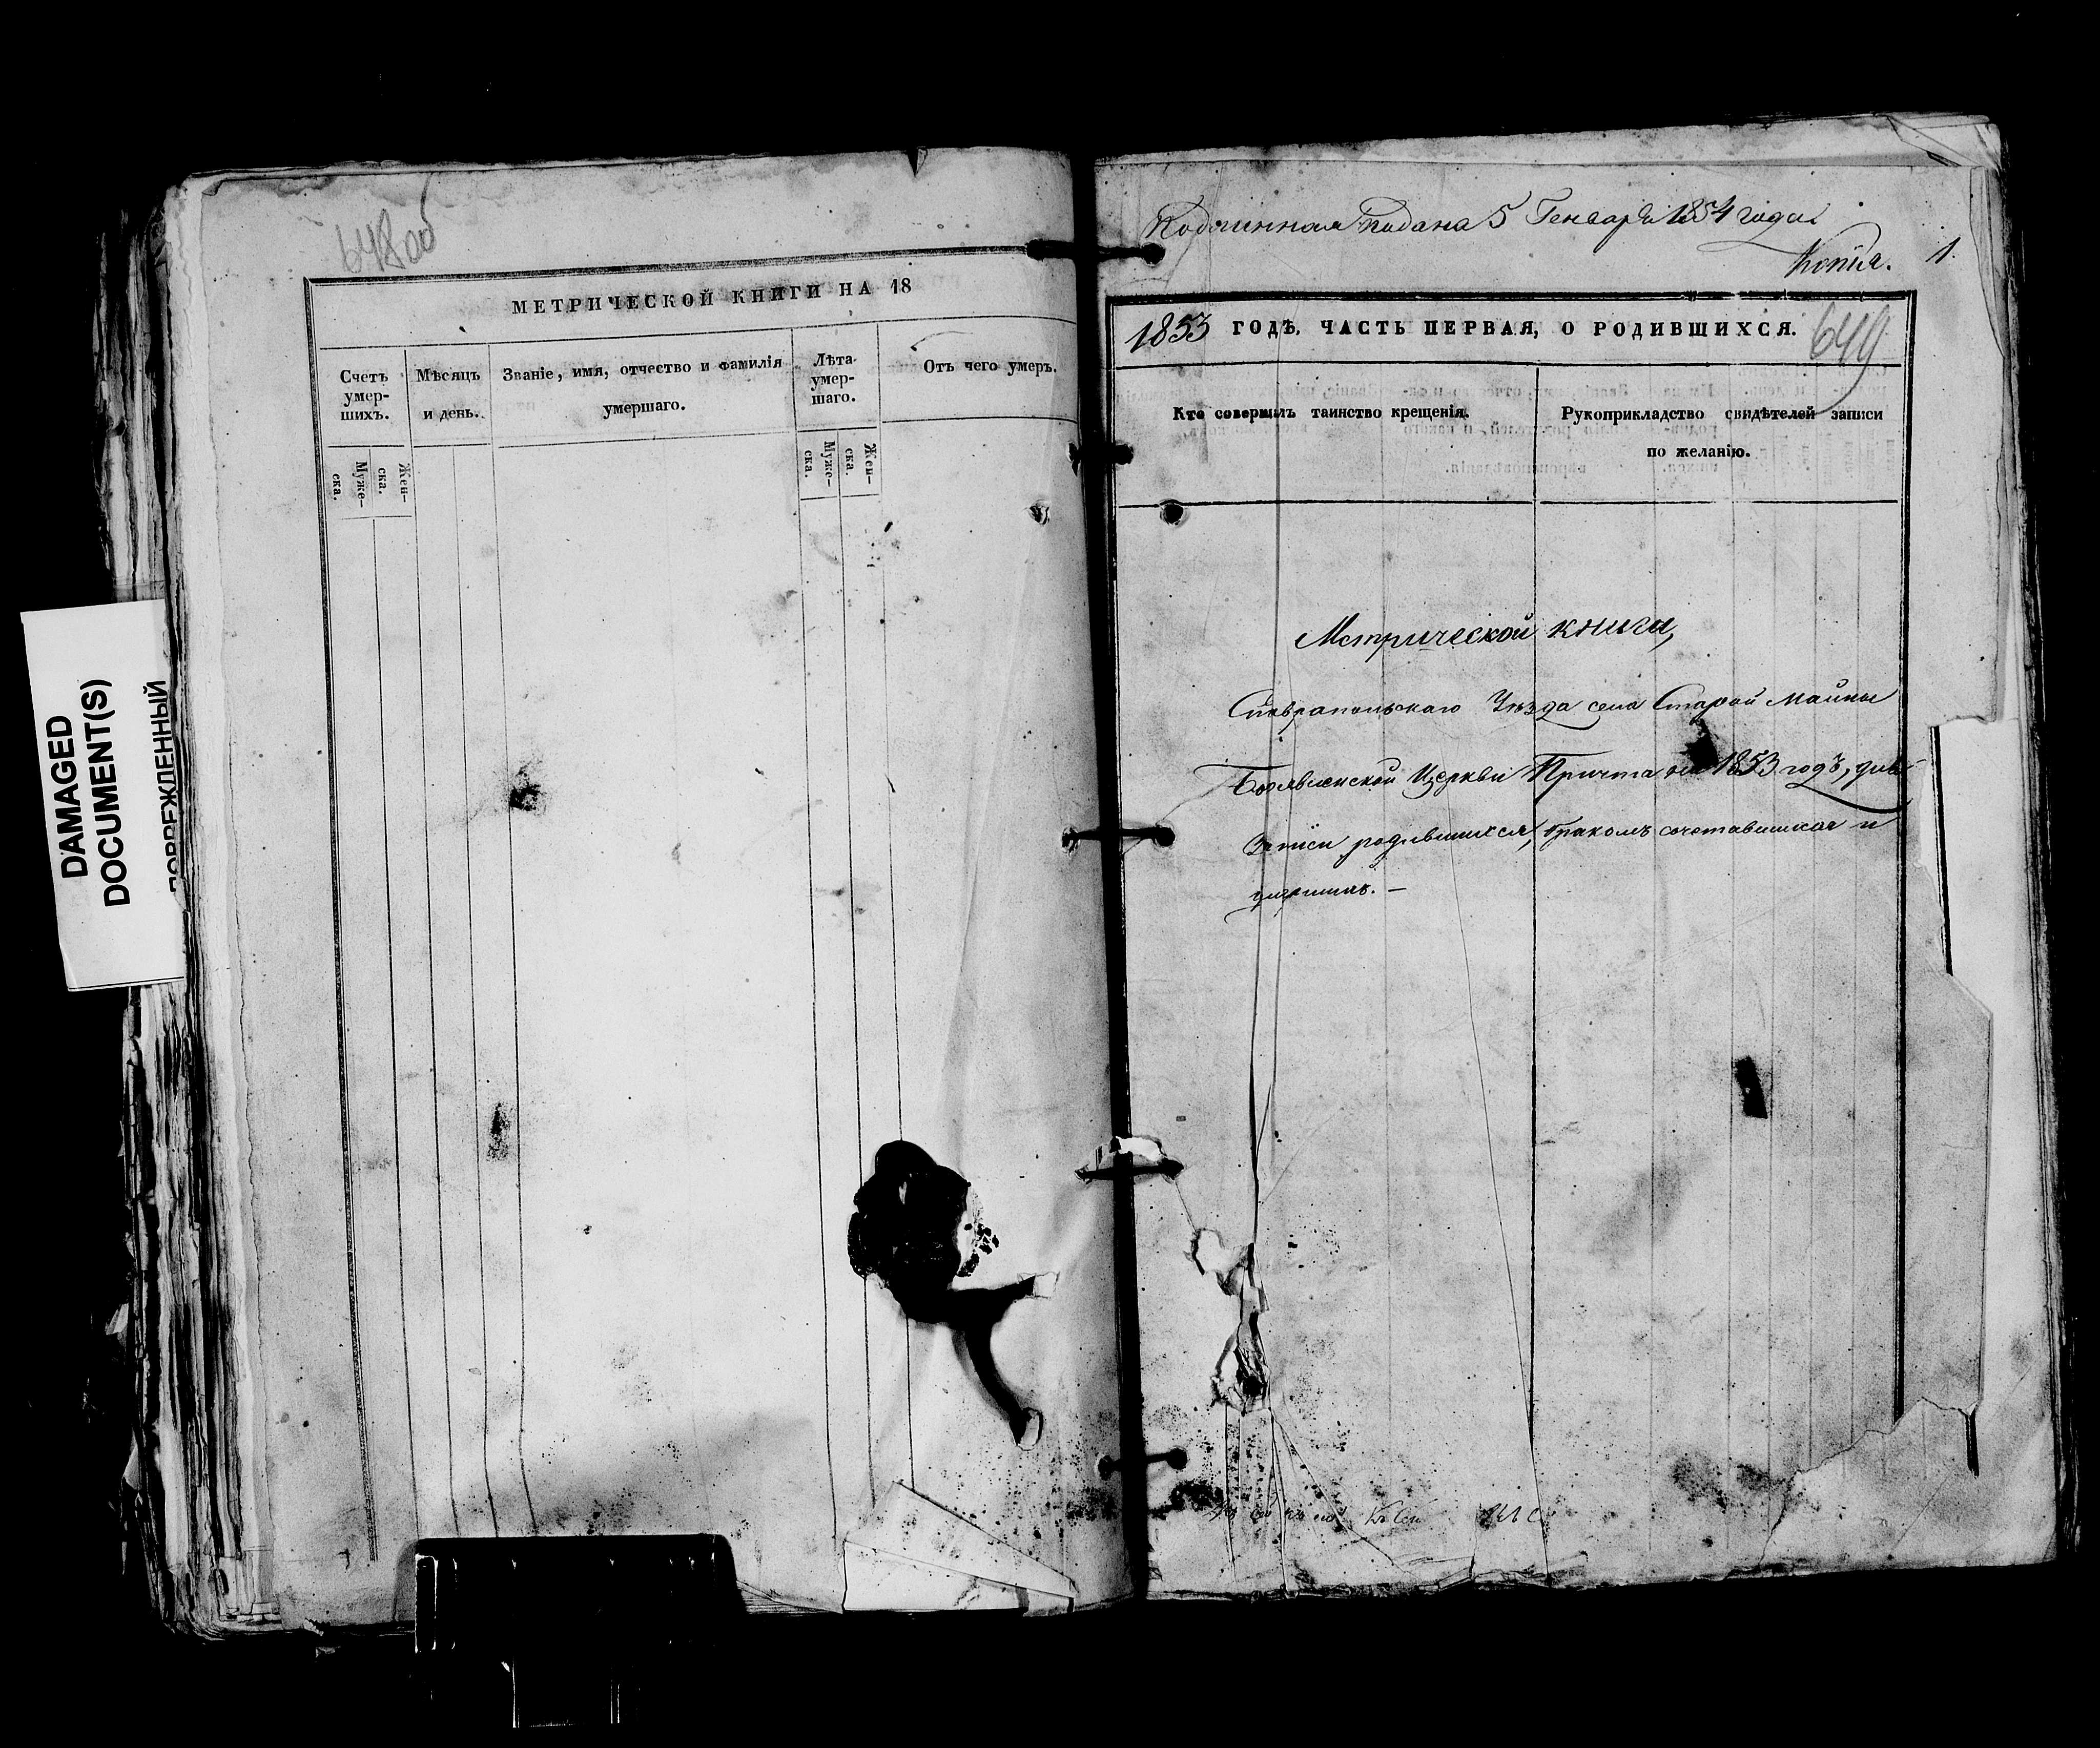 DAMAGED
DOCUMENT(S)
ПОВРЕЖДЕННЫЙ
648об
МЕТРИЧЕСКОЙ КНИГИ НА 18
Счетъ умер-шихъ.
Муже-ска.
Жен-ска.
Мѣсяцъ и день.
Званіе, имя, отчество и фамилія
умершаго.
Лѣта умер-шаго.
Муже-ска.
Жен-ска.
Отъ чего умеръ.
Подлинная подана 5 Генваря 1854 года
Копія. 1.
1853 ГОДѢ, ЧАСТЬ ПЕРВАЯ, О РОДИВШИХСЯ.
649
Кто совершилъ таинство крещенія.
Рукоприкладство свидѣтелей записи
по желанію.
Метрической книги,
Ставропольскаго Уѣзда села Старой Майны
Богоявленской Церкви Причта на 1853 годъ, для
записи родившихся, бракомъ сочетавшихся и
умершихъ. —